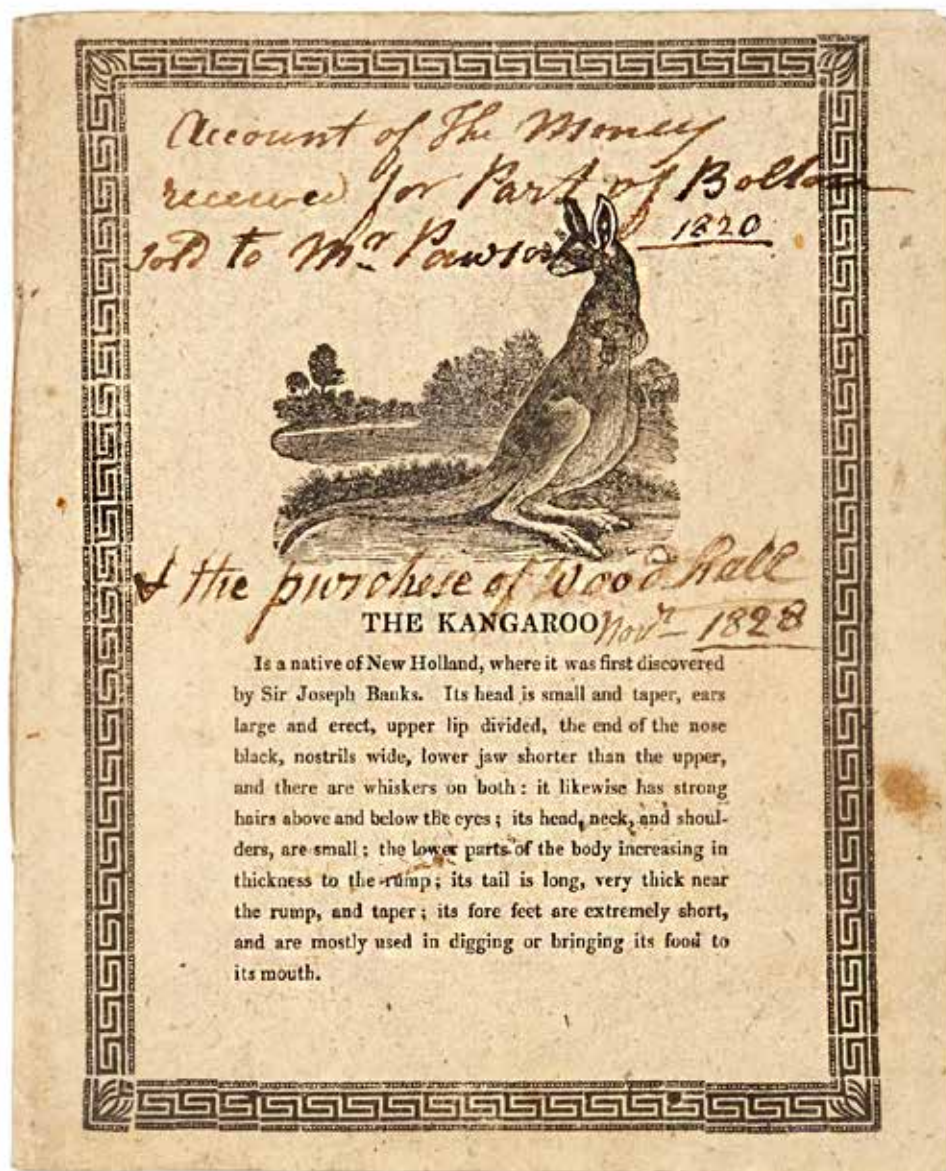 Account of The Money
received for Part of Bolton
sold to Mr Pawson 1820
& the purchese of Woodhall
THE KANGAROO
Novr 1828
Is a native of New Holland, where it was first discovered
by Sir Joseph Banks. Its head is small and taper, ears
large and erect, upper lip divided, the end of the nose
black, nostrils wide, lower jaw shorter than the upper,
and there are whiskers on both: it likewise has strong
hairs above and below the eyes; its head, neck, and shoul-
ders, are small; the lower parts of the body increasing in
thickness to the rump; its tail is long, very thick near
the rump, and taper; its fore feet are extremely short,
and are mostly used in digging or bringing its food to
its mouth.